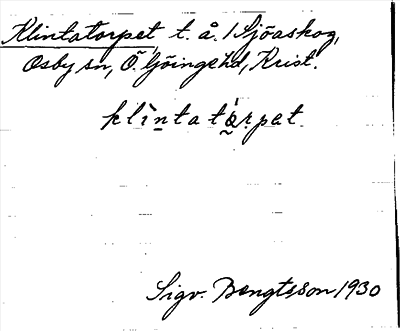 Klintatorpet, t. å. 1 Sjöaskog,
Osby sn, Ö. Göingehd, Krist.
klìntatórpet.
Sigv. Bengtsson 1930